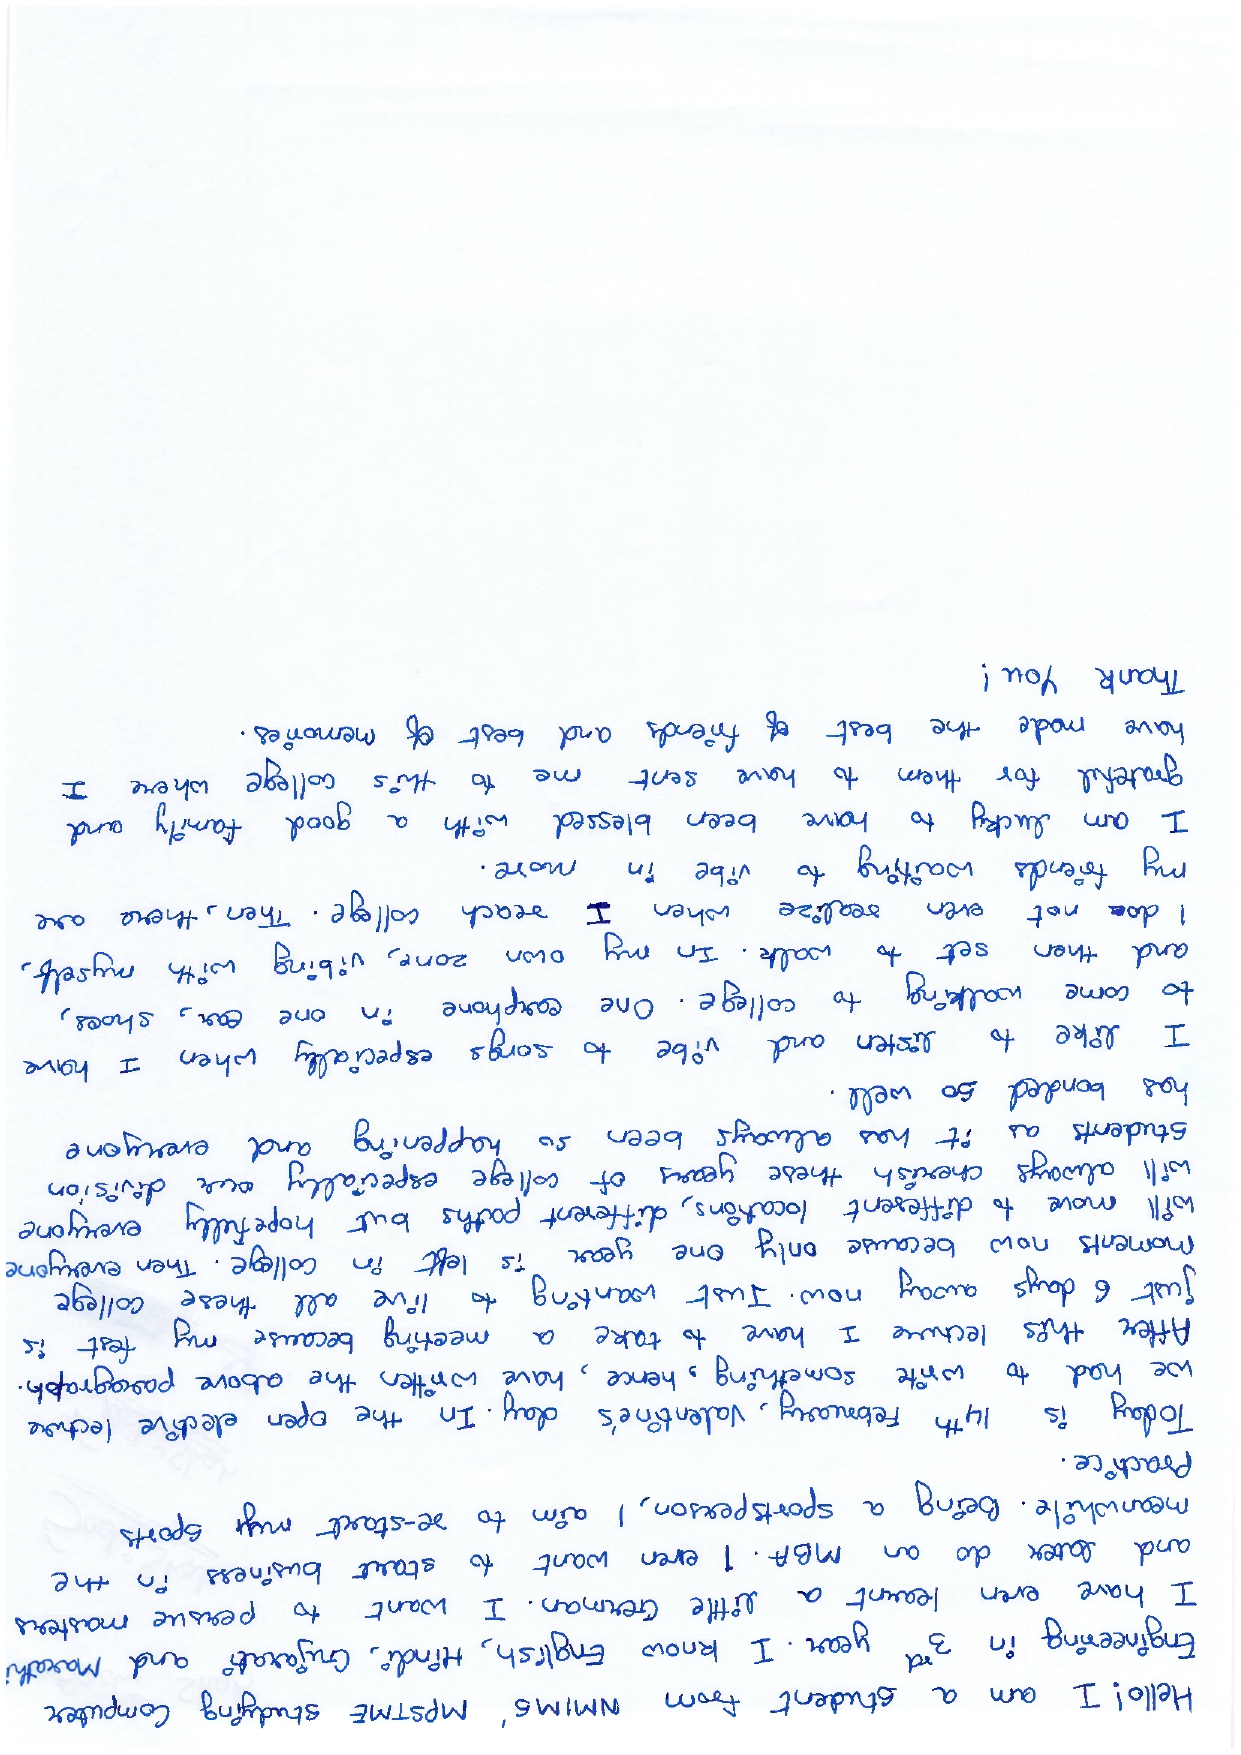 Hello! I am a student from NMIMS' MPSTME studying Computer
Engineering in 3rd year. I know English, Hindi, Gujarati and Marathi
I have even learnt a little German. I want to persue masters
and later do an MBA. I even want to start business in the
meanwhile. Being a sportsperson, I aim to re-start my sports
Practice.
Today is 14th February, Valentine's day. In the open elective lecture
we had to write something, hence, have written the above paragraph.
After this lecture I have to take a meeting because my fest is
just 6 days away now. Just wanting to live all these college
moments now because only one year is left in college. Then everyone
will move to different locations, different paths but hopefully everyone
will always cherish these years of college especially our division
students as it has always been so happening and everyone
has bonded so well.
I like to listen and vibe to songs especially when I have
to come walking to college. One earphone in one ear, shoes,
and then set to walk. In my own zone, vibing with myself,
I do not even realize when I reach college. Then, there are
my friends waiting to vibe in more.
I am lucky to have been blessed with a good family and
grateful for them to have sent me to this college where I
have made the best of friends and best of memories.
Thank You!